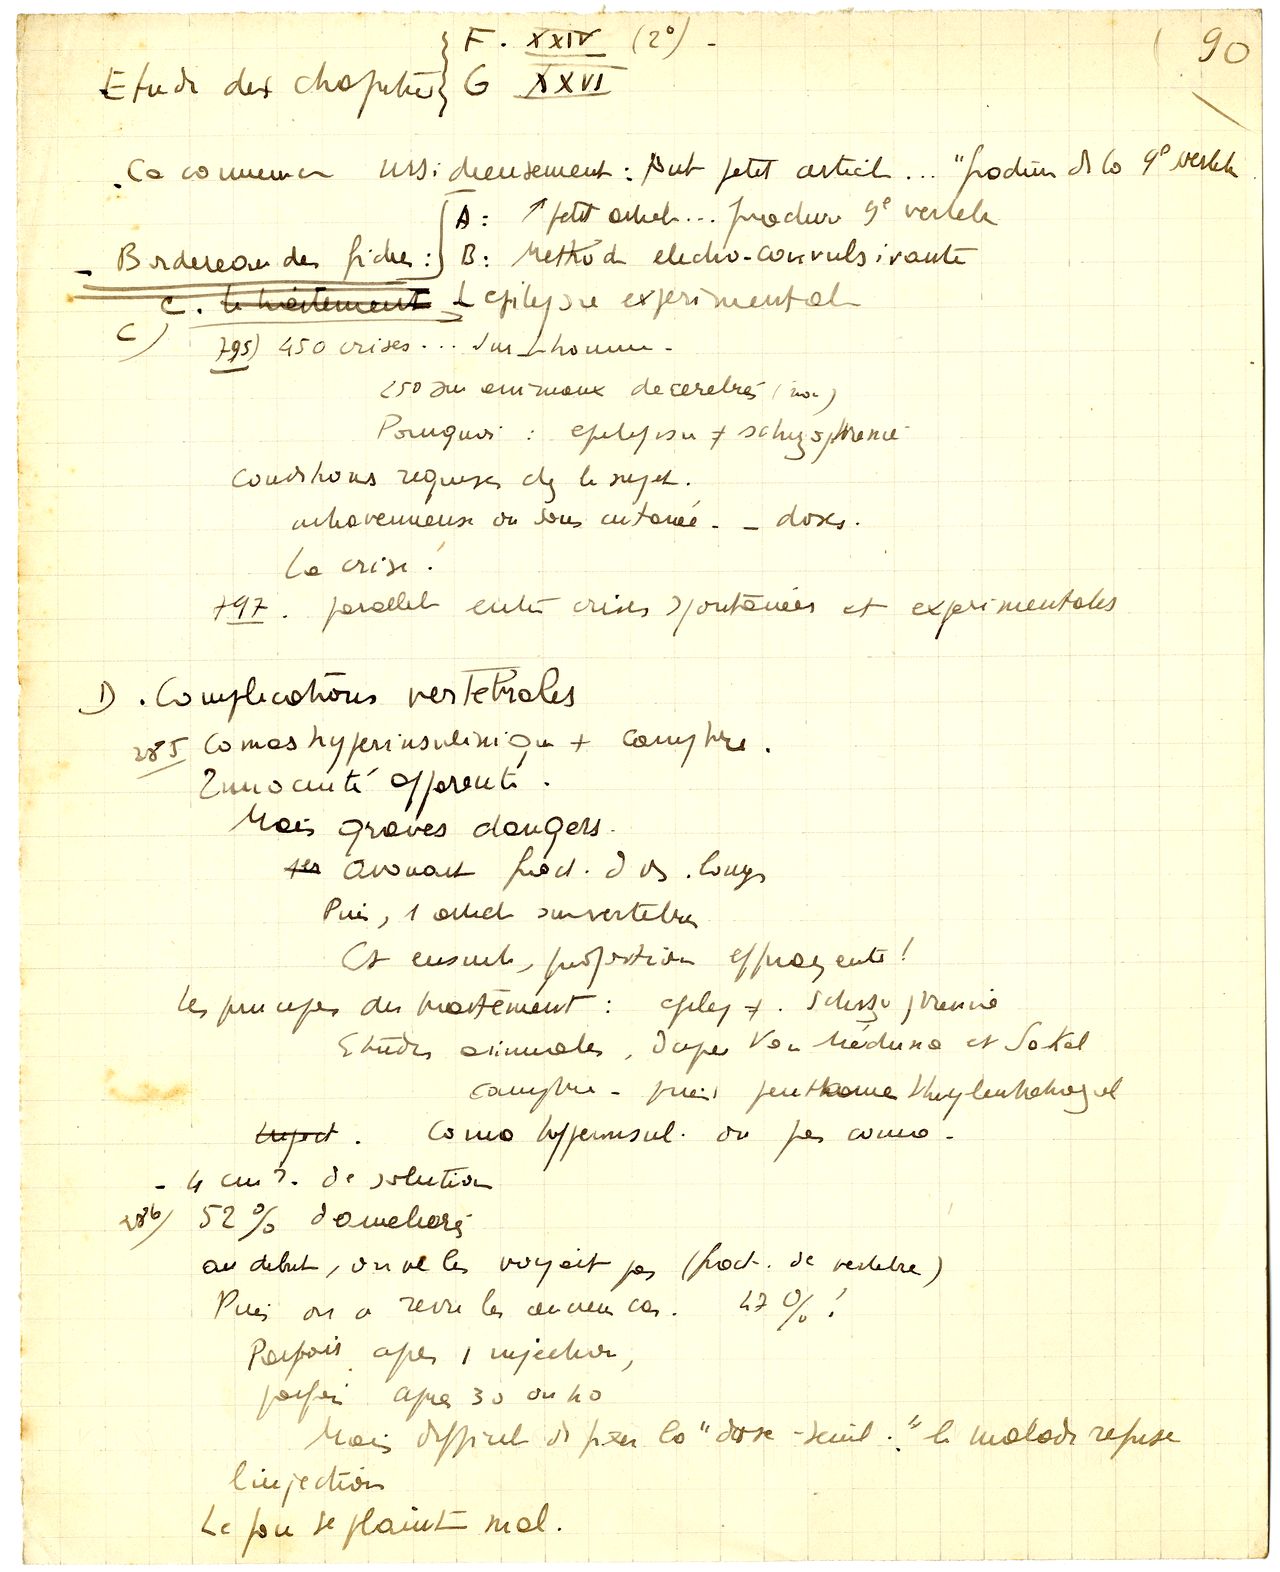 F. XXIV (2°) -
90
Etude des chapitres G XXVI
Ca commence insidieusement : Petit article ... "fracture de la 9e vertèbre
A : petit article ... fracture 9e vertèbre
Bordereau des fiches : B : Methode electro-convulsivante
C. le traitement L epilepsie experimentale
C)
795) 450 crises ... sur l homme -
250 sur animaux decerebrés (non)
Pourquoi : epilepsie ≠ schizophrenie
Conditions requises chz le sujet.
intraveineuse ou sous cutanée - - doses.
La crise !
797. parallele entre crises spontanées et experimentales
D. Complications vertebrales
285 Comas hyperinsulinique + camphre.
Innocuité apparente.
Mais graves dangers.
avouait fract. d os longs
Puis, 1 article sur vertebres
Et ensuite, proportion effrayante !
les principes du traitement : epilep ≠. Schizophrenie
Etudes animales, dapres Von Méduna et Sakel
camphre - puis penthylentetrazol
Inject. Coma hyperinsul. ou pas coma -
- 4 cm3. de solution
286) 52 % d ameliorés
au debut, on ne les voyait pas (fract. de vertebre)
Puis on a revu les anciens cas. 47 % !
Parfois apres 1 injection,
parfois apres 30 ou 40
Mais difficile de fixer la "dose-seuil." le malade refuse
l injection
Le fou se plaint mal.